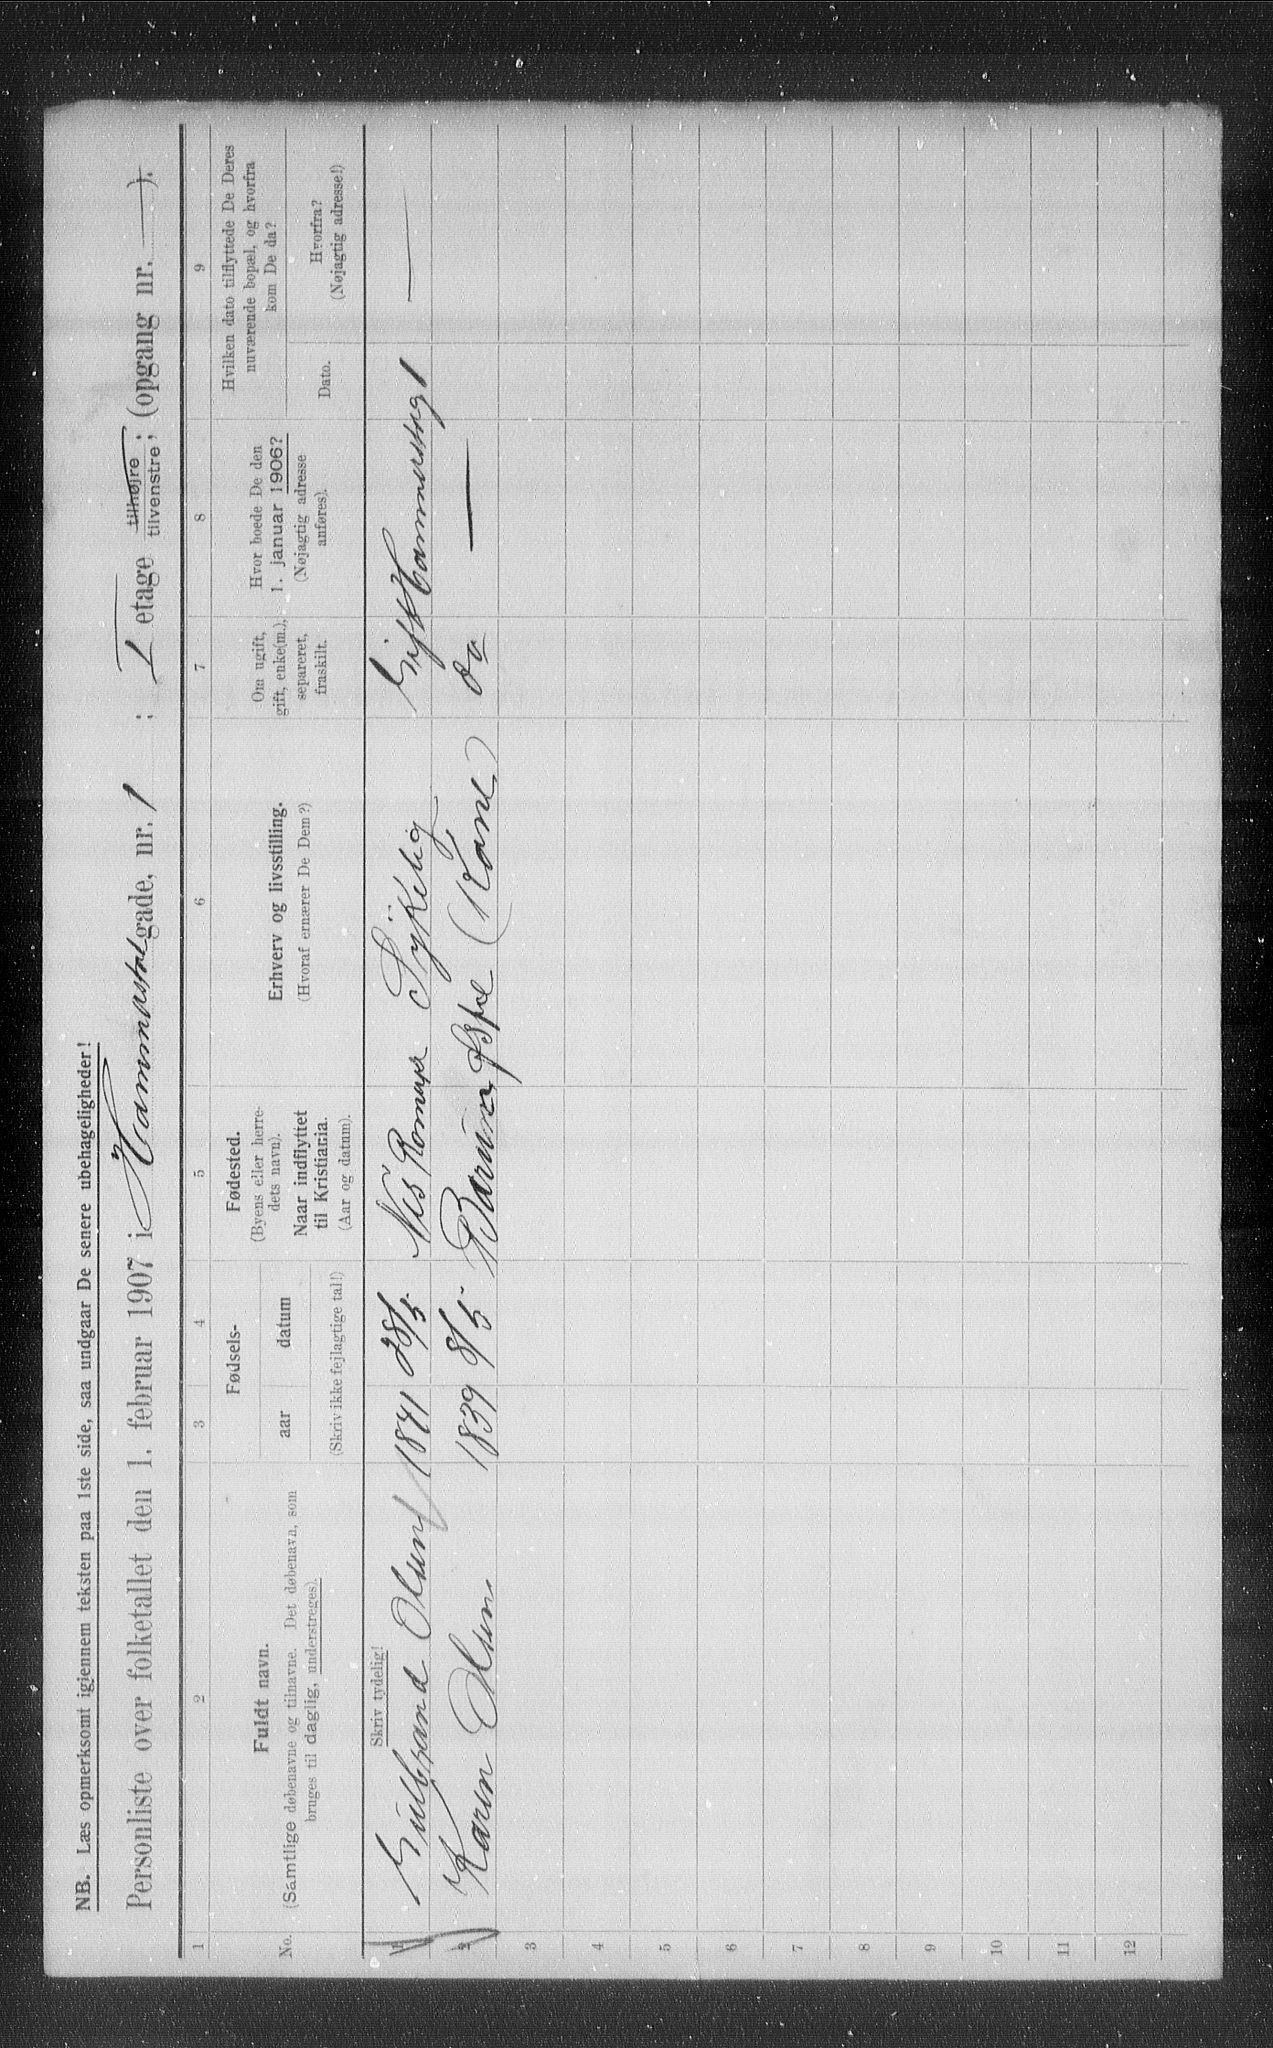 NB. Læs opmerksomt igjennem teksten paa 1ste side, saa undgaar De senere ubehageligheder!
Personliste over folketallet den 1. februar 1907 i Hammerstad gade, nr. 1 ; I etage tilhøjre tilvenstre; (opgang nr. — ).
1 2 3 4 5 6 7 8 9
No.
Fuldt navn.
(Samtlige døbenavne og tilnavne. Det døbenavn, som
bruges til daglig, understreges).
Fødsels-
aar datum
(Skriv ikke fejlagtige tal!)
Fødested.
(Byens eller herre-
dets navn).
Naar indflyttet
til Kristiania.
(Aar og datum).
Erhverv og livsstilling.
(Hvoraf ernærer De Dem?)
Om ugift,
gift, enke(m.),
separeret,
fraskilt.
Hvor boede De den
1. januar 1906?
(Nøjagtig adresse
anføres).
Hvilken dato tilflyttede De Deres
nuværende bopæl, og hvorfra
kom De da?
Dato.
Hvorfra?
(Nøjagtig adresse!)
Skriv tydelig!
1 Gulbrand Olsen 1841 28/5 Nes Romerike Sykelig Gift Hammerstdgt 1 —
2 Karen Olsen 1839 8/5 Bærum (Kone) do —
3
4
5
6
7
8
9
10
11
12